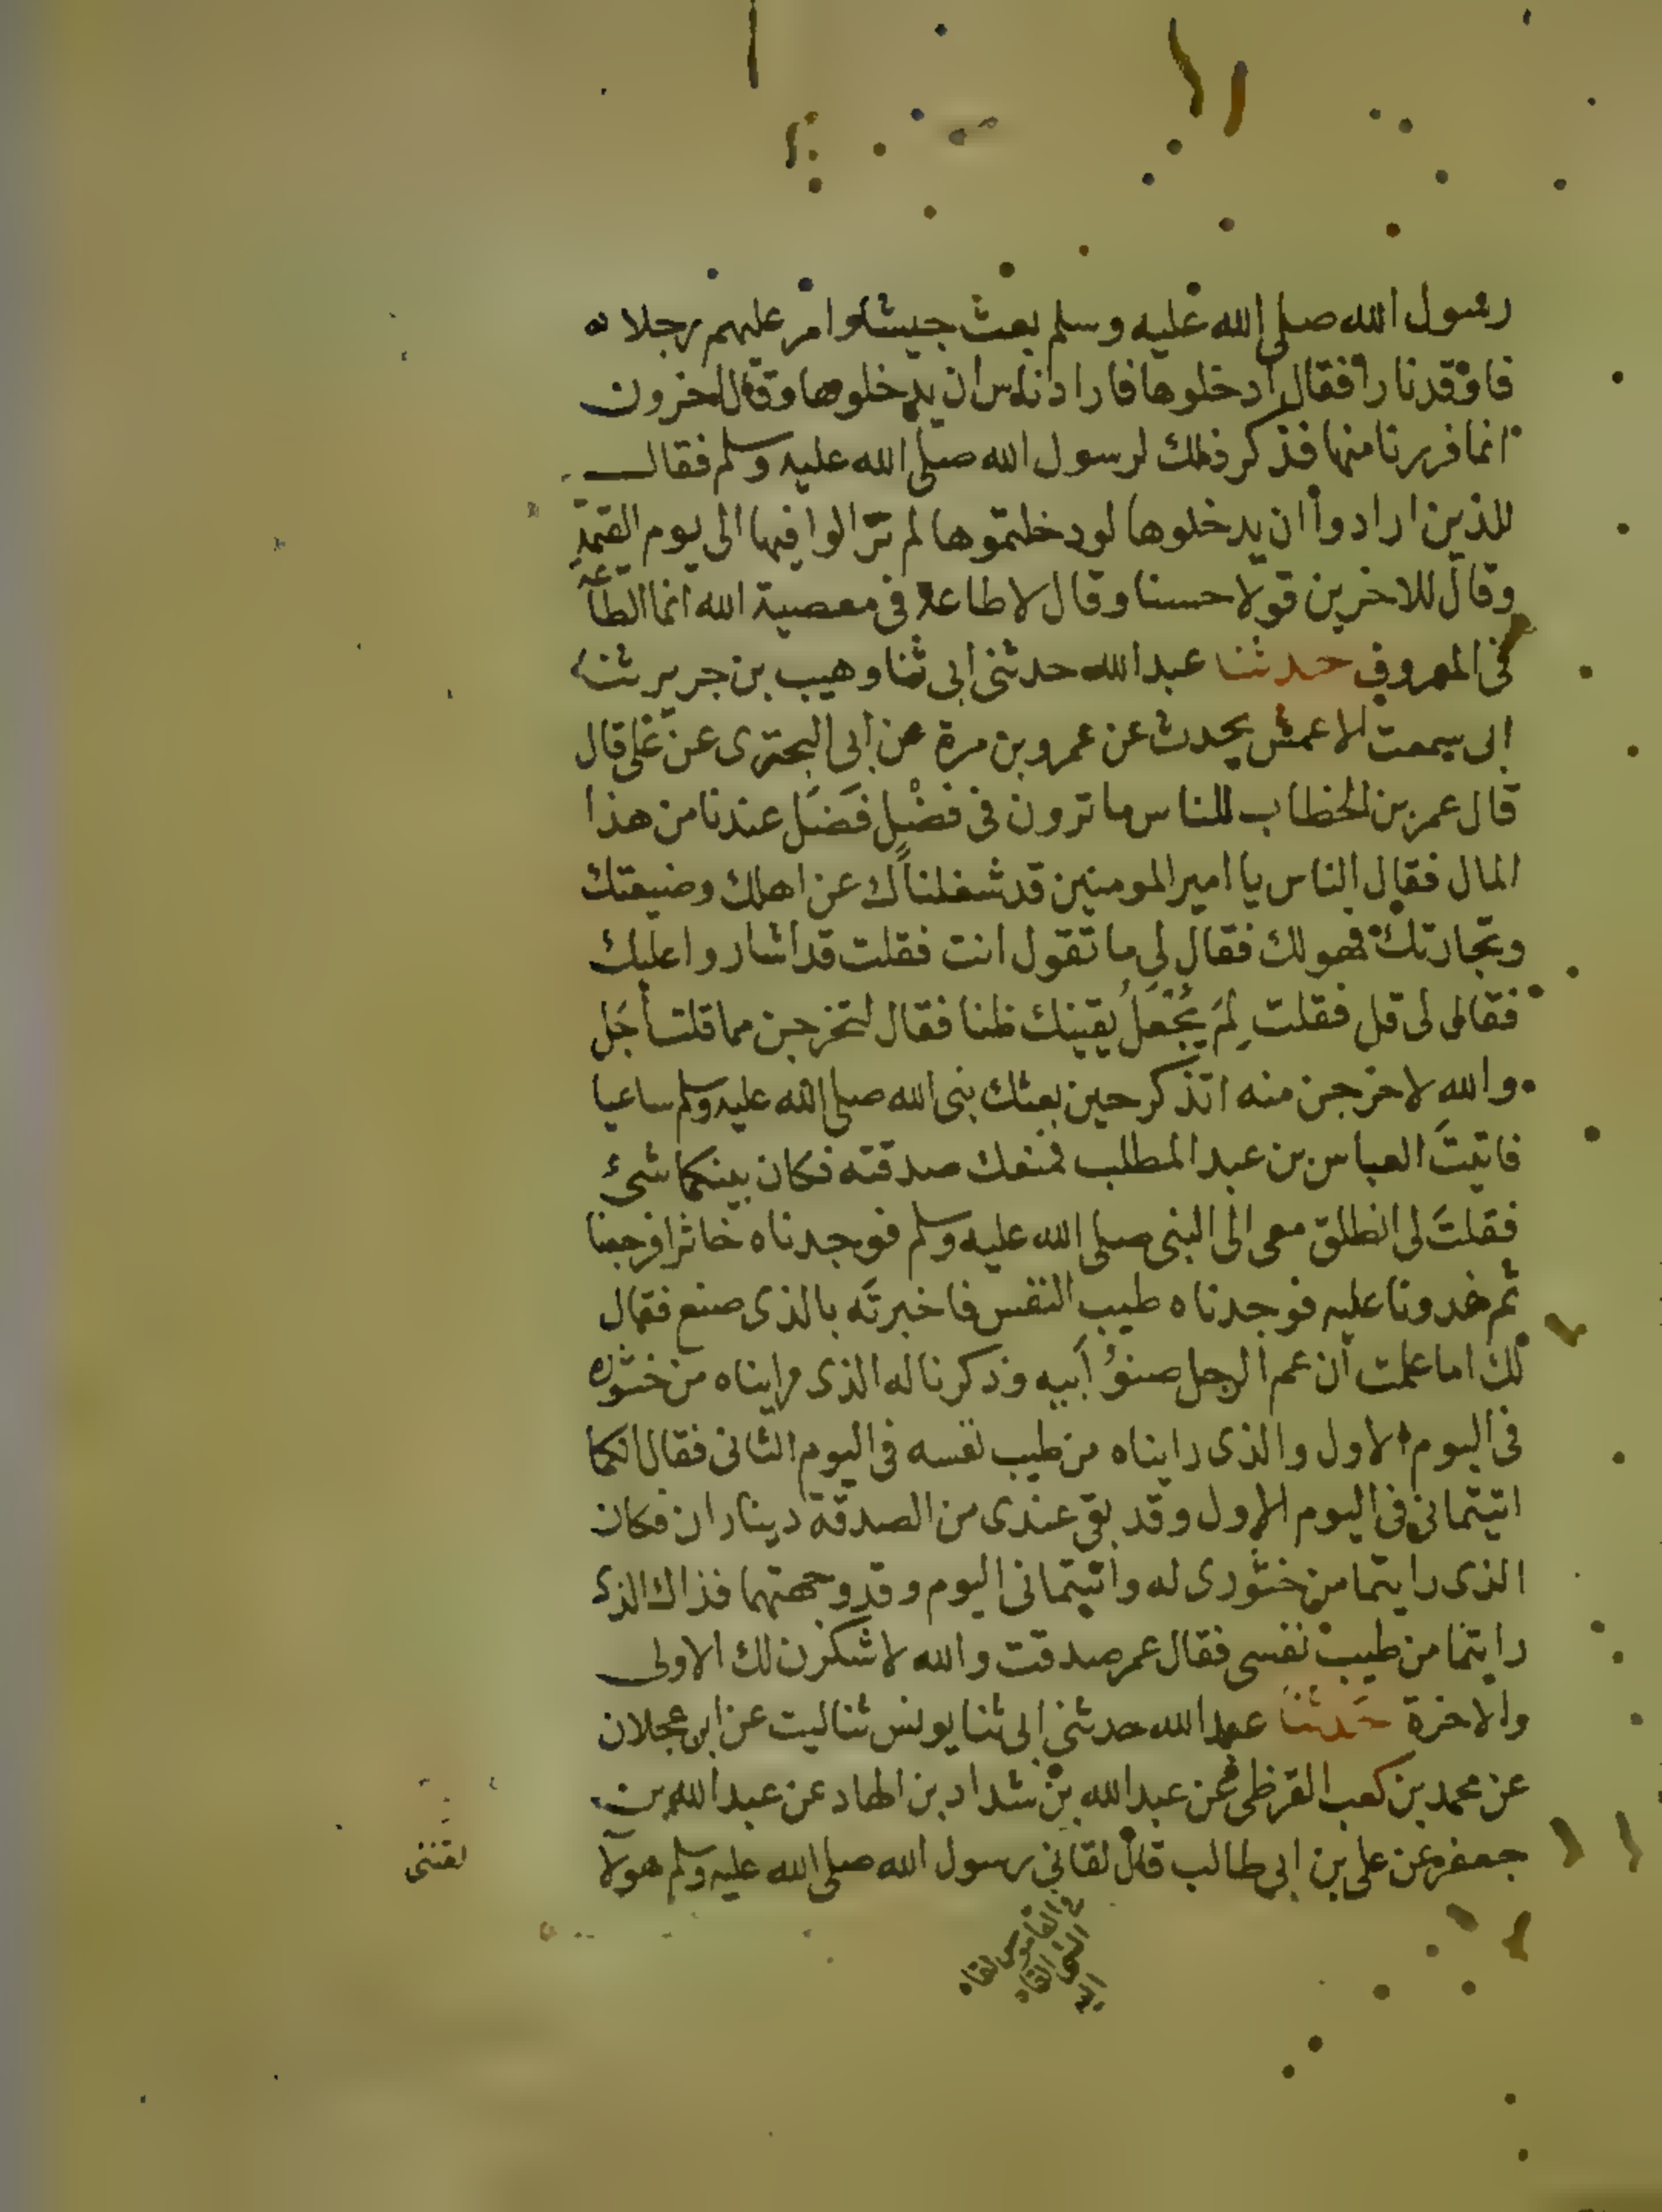 رسول الله صلى الله عليه وسلم بعث جيشا وامر عليهم رجلا
فاوقد نارا فقال ادخلوها فاراد ناس ان يدخلوها وقال اخرون
انما فررنا منها فذكر ذلك لرسول الله صلى الله عليه وسلم فقال
للذين ارادوا ان يدخلوها لو دخلتموها لم تزالوا فيها الى يوم القيمة
وقال للاخرين قولا حسنا وقال لا طاعة في معصية الله انما الطاعة
في المعروف حدثنا عبد الله حدثني ابي ثنا وهيب بن جرير ثنا
ابي سمعت الاعمش يحدث عن عمرو بن مرة عن ابي البختري عن علي قال
قال عمر بن الخطاب للناس ما ترون في فضْلٍ فَضَلَ عندنا من هذا
المال فقال الناس يا امير المومنين قد شغلناك عن اهلك وضيعتك
وتجارتك فهو لك فقال لي ما تقول انت فقلت قد اشاروا عليك
فقال لى قل فقلت لِمَ يُجْعَلُ يقينك ظنا فقال لتخرجن مما قلت أجَل
والله لاخرجن منه اتذكر حين بعثك نبى الله صلى الله عليه وسلم ساعيا
فاتيتَ العباس بن عبد المطلب فمنعك صدقته فكان بينكما شيء
فقلتَ لي انطلق معى الى النبى صلى الله عليه وسلم فوجدناه خاثرا فرجعنا
ثم غدونا عليه فوجدناه طيب النفس فاخبرتَه بالذى صنع فقال
لك اما علمت ان عم الرجل صنوُ أبيه وذكرنا له الذى رايناه من خثوره
فى اليوم الاول والذى رايناه من طيب نفسه فى اليوم الثانى فقال انكما
اتيتمانى فى اليوم الاول وقد بقى عندى من الصدقة ديناران فكان
الذى رايتما من خثورى له واتيتمانى اليوم وقد وجهتهما فذاك الذى
رايتما من طيب نفسى فقال عمر صدقت والله لاشكرن لك الاولى
والاخرة حَدثنا عبد الله حدثنى ابى ثنا يونس ثنا ليث عن ابن عجلان
عن محمد بن كعب القرظى عن عبد الله بن شداد بن الهاد عن عبد الله بن
جعفر عن على بن ابى طالب قال لقانى رسول الله صلى الله عليه وسلم هولآ
لقننى
فى القاموس لقاه
الشى القاه
اليه